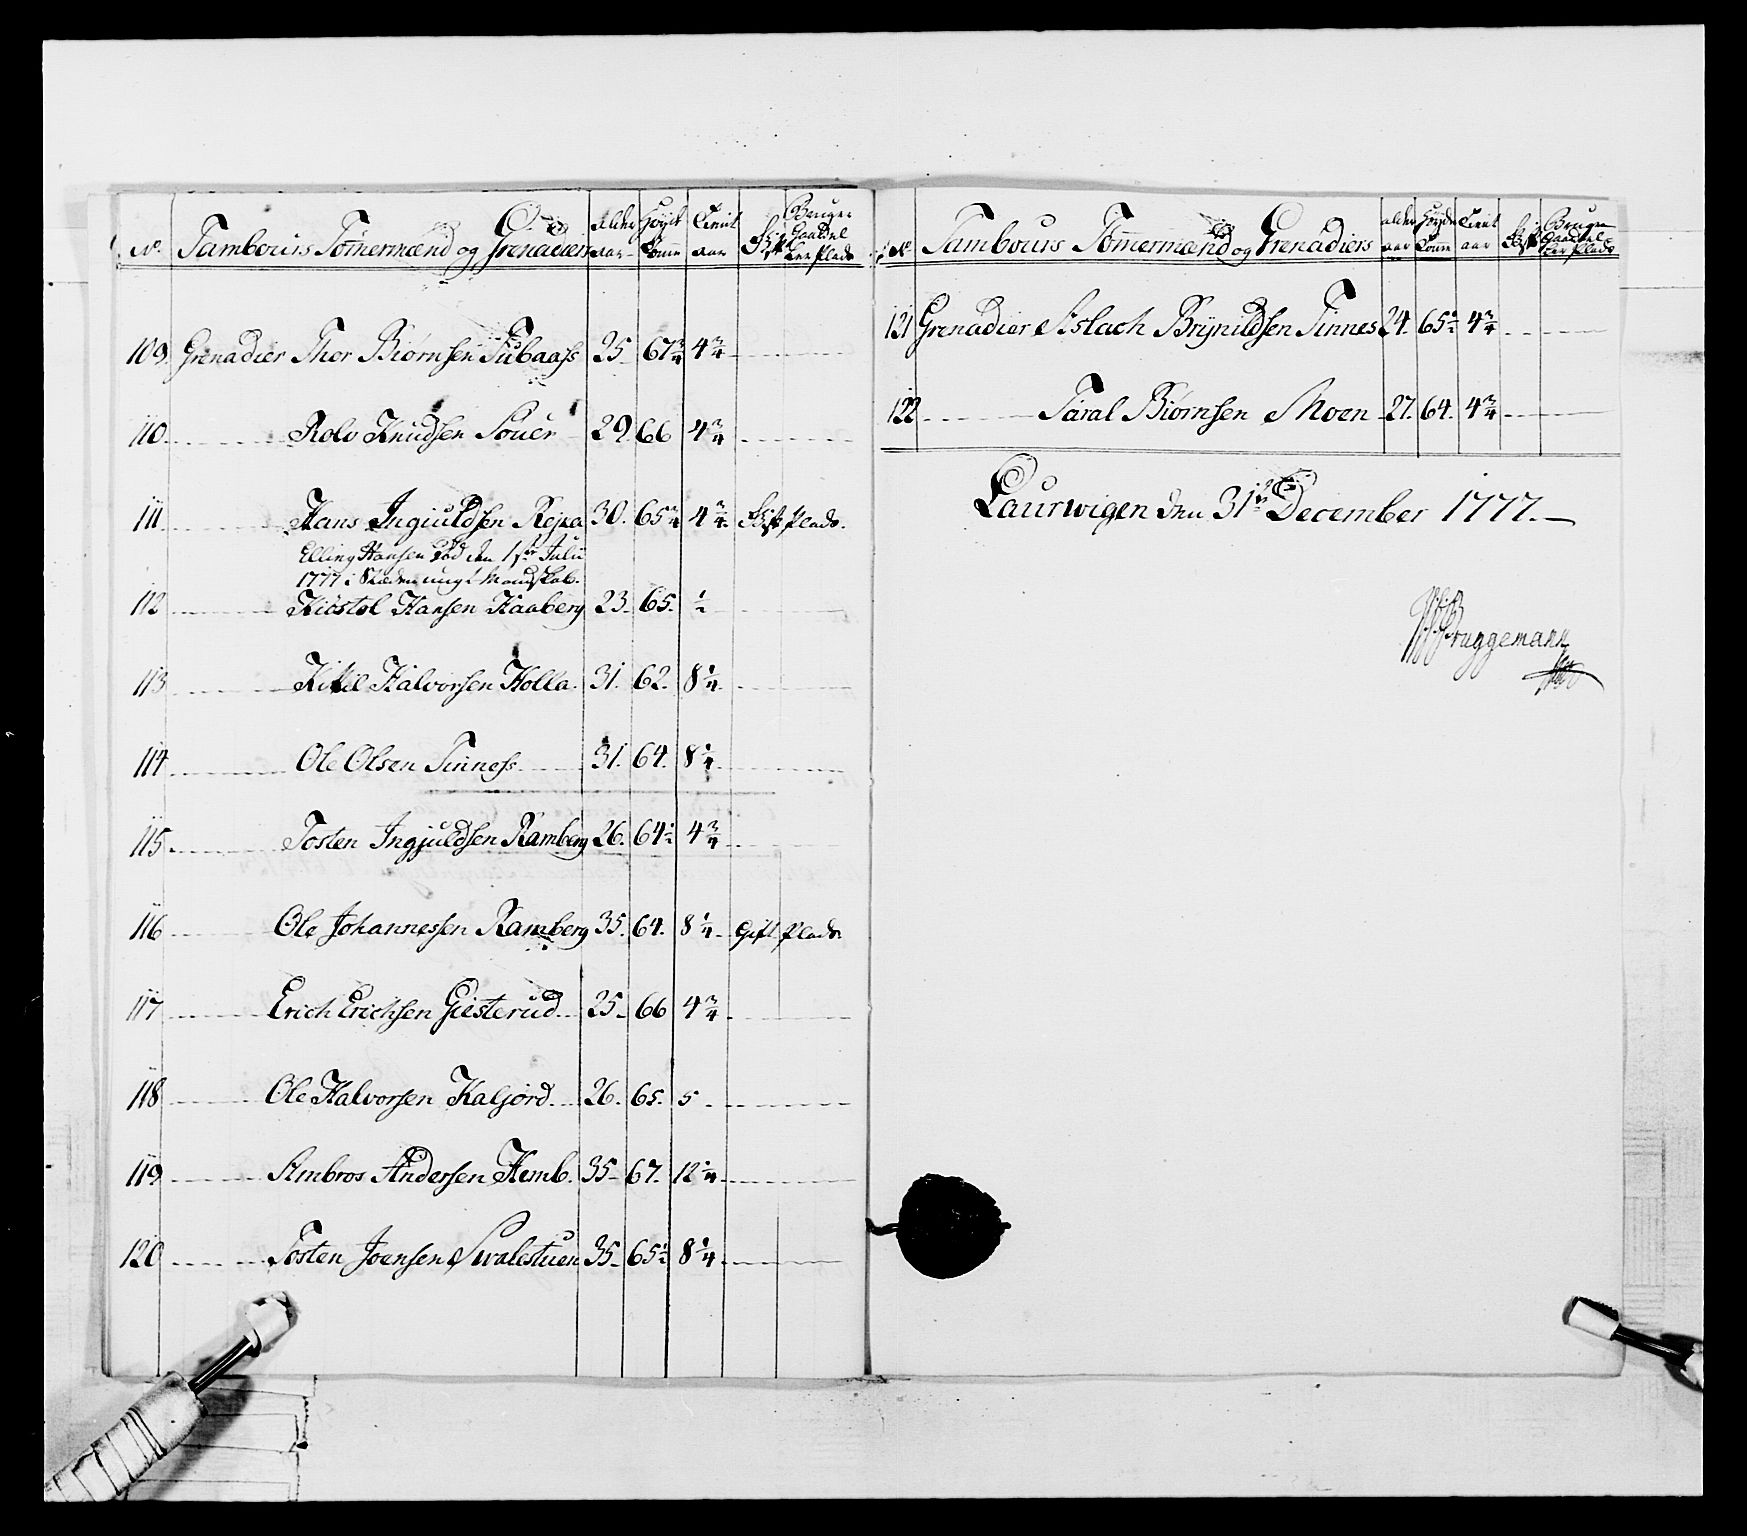 No. Tambours Tømermænd og Grenadiers alder aar Høyde Tomme Tienst aar Gift Bruger Gaard el ler Plads
109. Grenadier Thor Biørnsen Tubaass 25 67 3/4 4 3/4
110. Rolv Knudsen Souer 29 66 4 3/4
111 Hans Ingiuldsen Rejsa 30. 65 3/4 4 3/4 Gift Plads.
Elling Hansen død den 1ste Julii
1777 i Stæden ungt Mandskab.
112 Kiöstol Hansen Haaberg 23. 65. 1/2
113 Kittil Halvorsen Holla 31. 62. 8 1/4
114 Ole Olsen Tinness 31. 64. 8 1/4
115 Tosten Ingjuldsen Ramberg 26. 64 1/2 4 3/4
116 Ole Johannessen Ramberg 35. 64. 8 1/4 Gift Plads.
117 Erich Erichsen Giesterud 25 66 4 3/4
118 Ole Halvorsen Kaljord 26. 65. 5
119 Ambros Andersen Hemb. 35 67. 12 1/4
120 Tosten Joensen Svalestuen 35 65 1/2 8 1/4
No Tambours Tømermænd og Grenadiers alder aar Høyde Tomme Tienst aar Gift Bruger Gaard el ler Plads
121 Grenadier Aslach Brynildsen Tinnes 24. 65 1/2 4 3/4
122 Taral Biørnsen Moen 27. 64. 4 3/4
Laurwigen den 31te December 1777.
Bruggemann